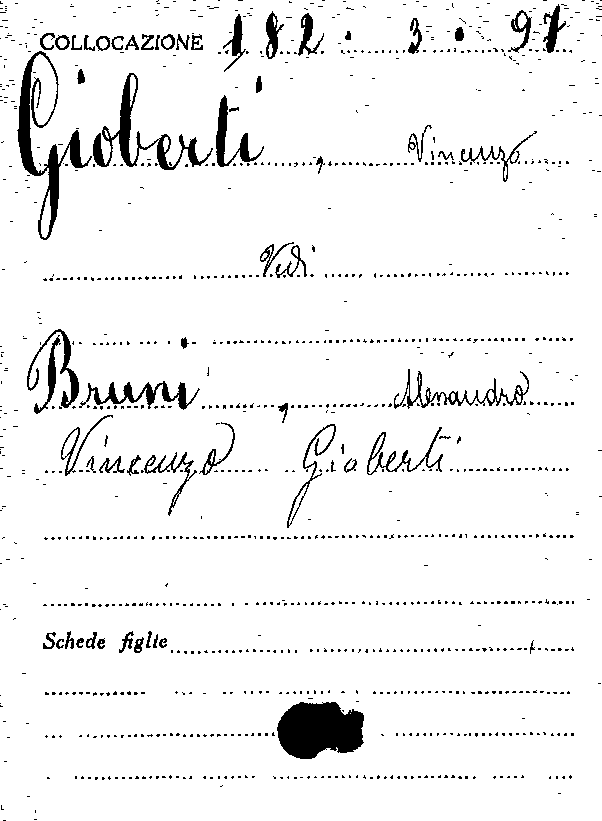 COLLOCAZIONE 182 · 3 · 97
Gioberti, Vincenzo
Vedi
Bruni, Alessandro
Vincenzo Gioberti
Schede figlie